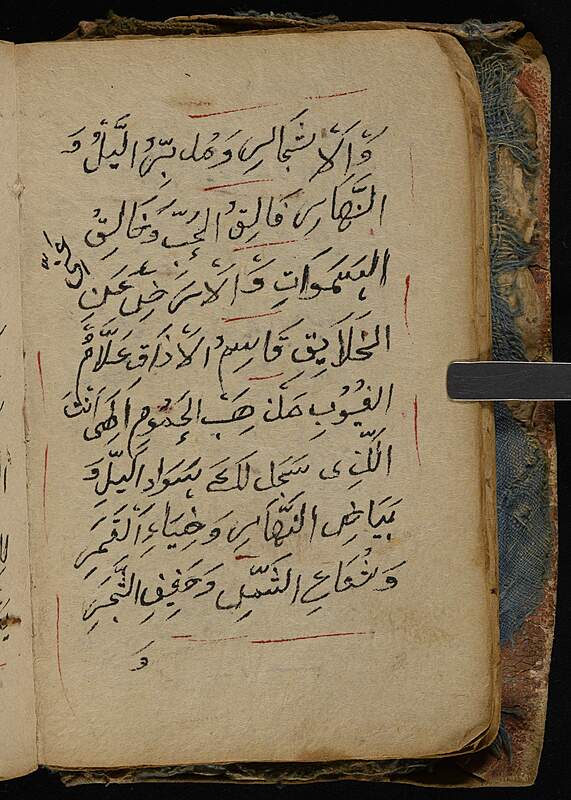 وَالْاَشْجَارِ وَمُدَبِّرُ اللَّيْلِ وَ
النَّهَارِ فَالِقُ الْحَبِّ وَخَالِقُ
السَّمَوَاتِ وَالْاَرَضِيْنَ
الْخَلَايِقِ قَاسِمُ الْاَرْزَاقِ عَلَّامُ
الْغُيُوْبِ مُذْهِبَ الْهُمُوْمِ اِلَهِى اَنْتَ
الَّذِى سَجَدَ لَكَ سَوَادُ اللَّيْلِ وَ
بَيَاضُ النَّهَارِ وَضِيَاءُ الْقَمَرِ
وَشُعَاعُ الشَّمْسِ وَحَفِيْفُ الشَّجَرِ
وَ